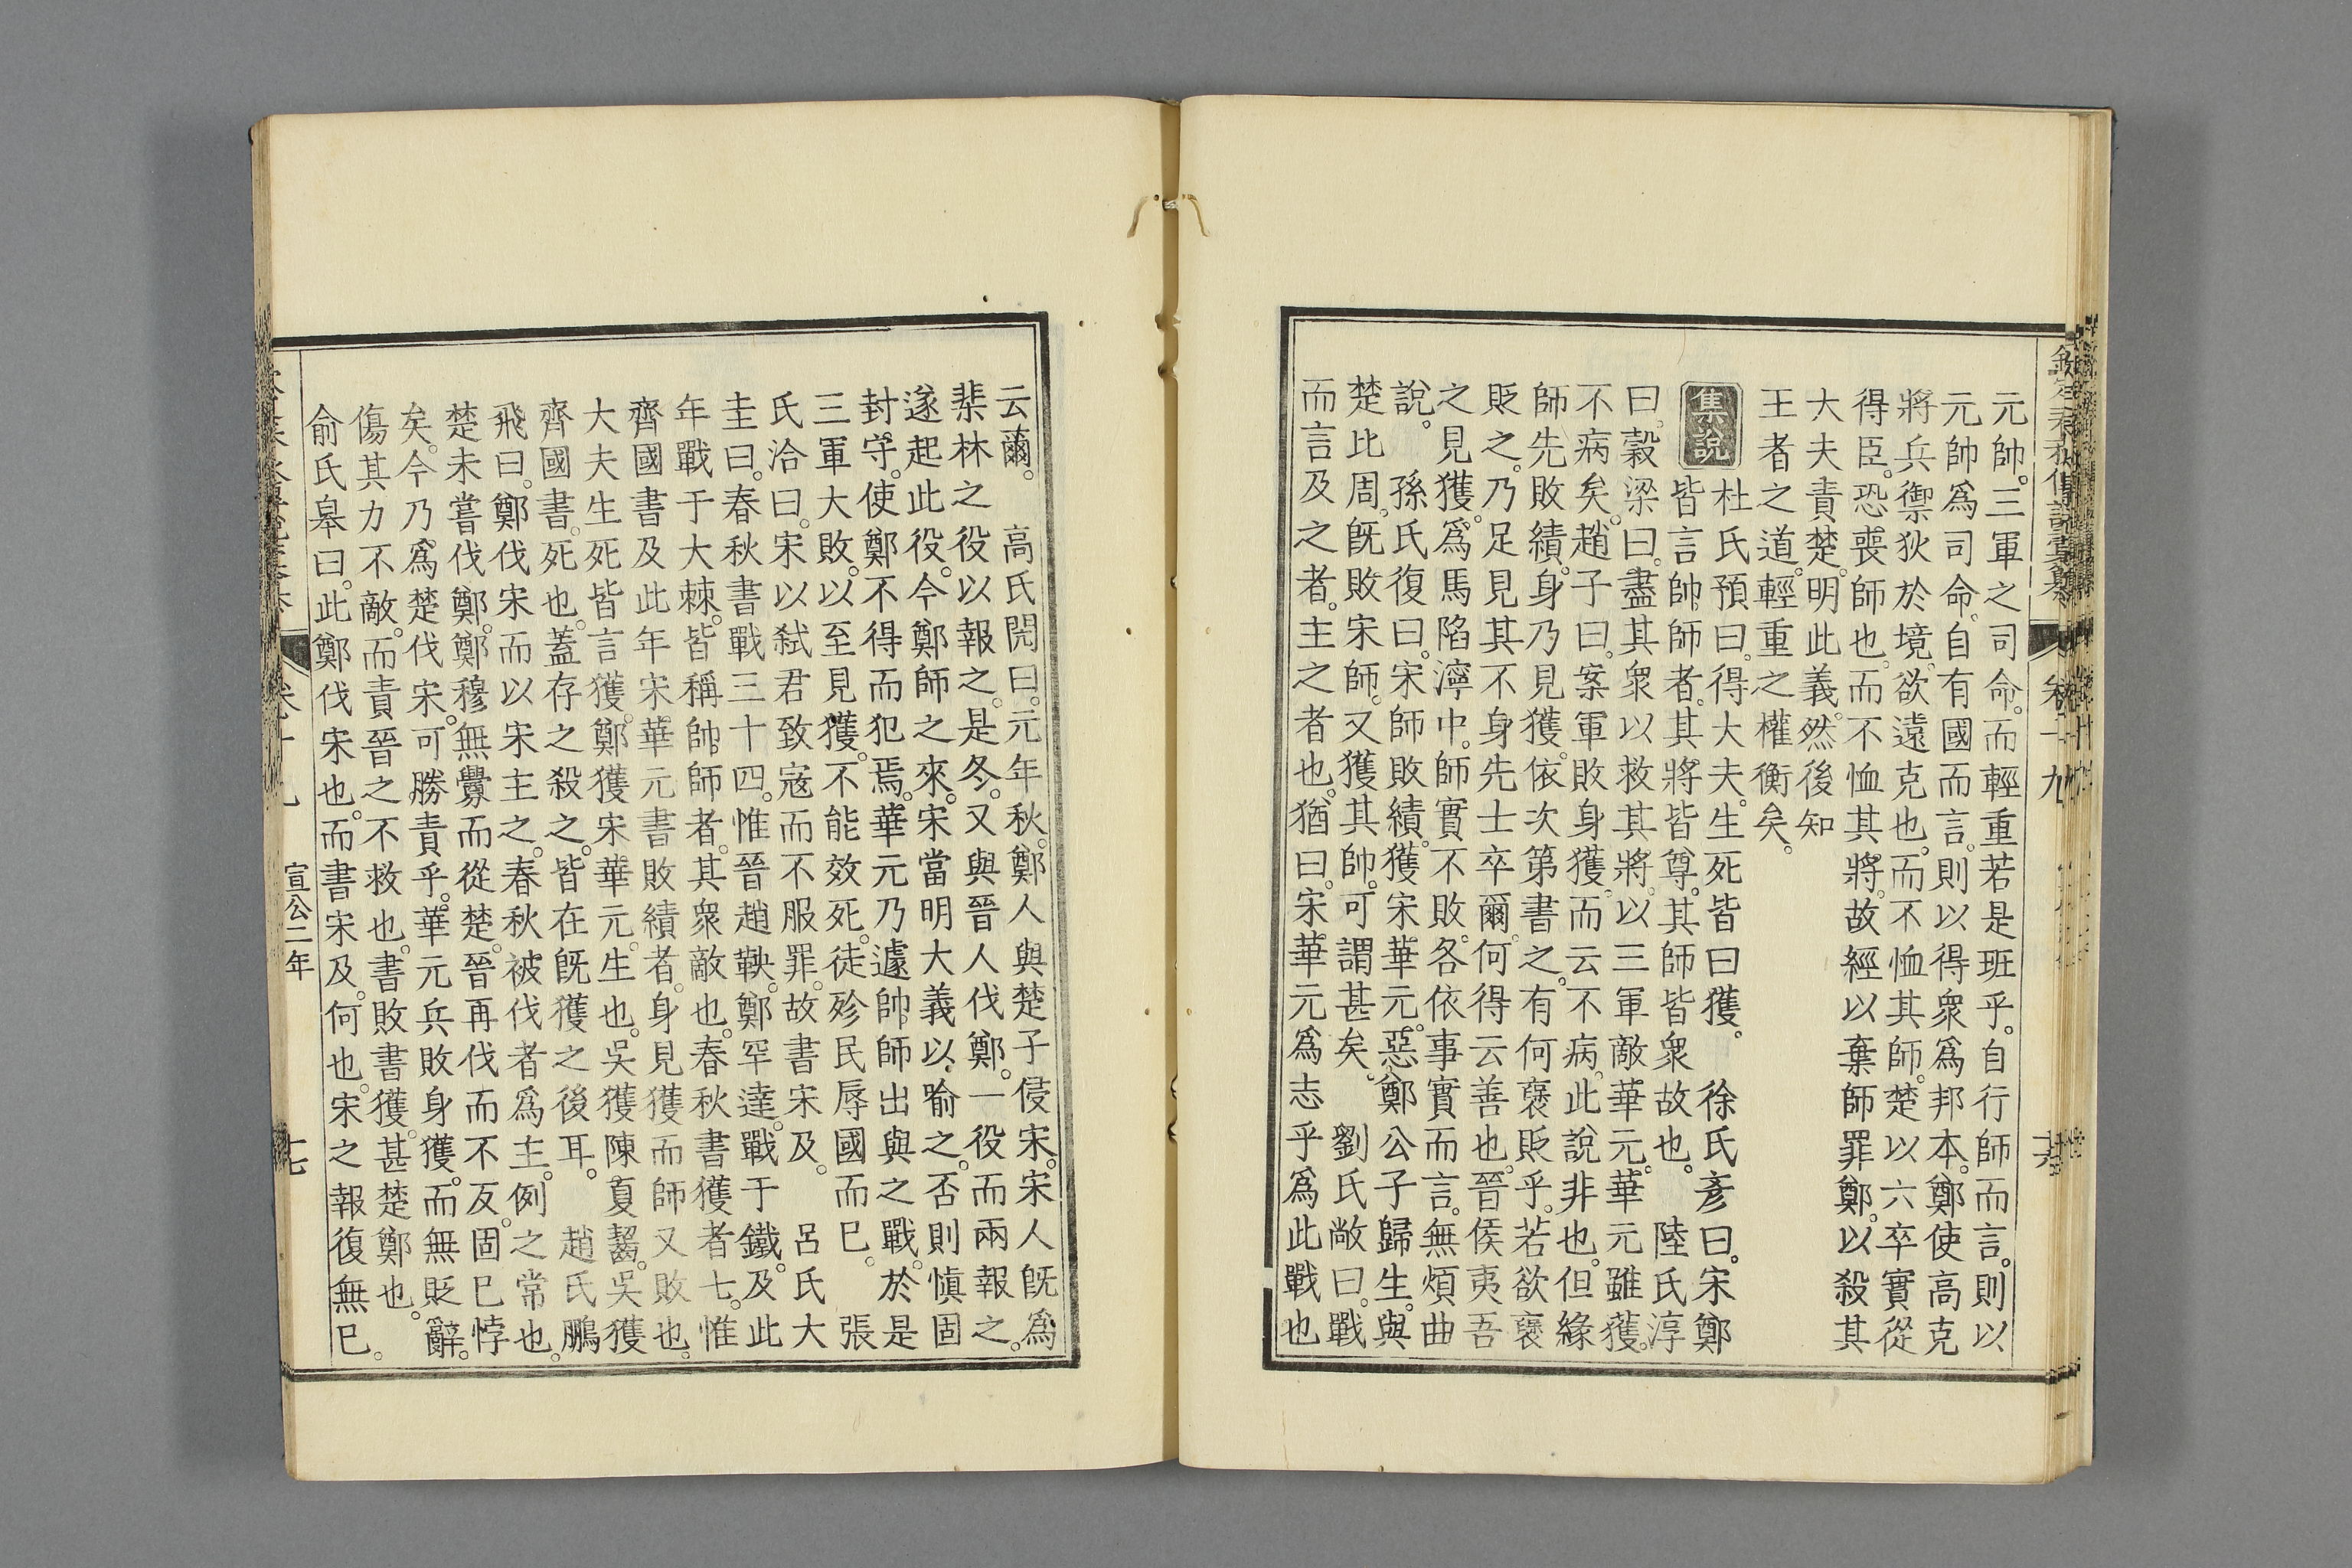 元帥。三軍之司命。而輕重若是班乎。自行師而言。則以
元帥爲司命。自有國而言。則以得衆爲邦本。鄭使高克
將兵禦狄於境。欲遠克也。而不恤其師。楚以六卒實從
得臣。恐喪師也。而不恤其將。故經以棄師罪鄭。以殺其
大夫責楚。明此義。然後知
王者之道。輕重之權衡矣。
集說
杜氏預曰。得大夫。生死皆曰獲。 徐氏彥曰。宋鄭
皆言帥師者。其將皆尊。其師皆衆故也。 陸氏淳
曰。穀梁曰。盡其衆以救其將。以三軍敵華元。華元雖獲。
不病矣。趙子曰。案軍敗身獲。而云不病。此說非也。但緣
師先敗績。身乃見獲。依次第書之。有何褒貶乎。若欲褒
貶之。乃足見其不身先士卒爾。何得云善也。晉侯夷吾
之見獲。爲馬陷濘中。師實不敗。各依事實而言。無煩曲
說。 孫氏復曰。宋師敗績。獲宋華元。惡鄭公子歸生。與
楚比周。旣敗宋師。又獲其帥。可謂甚矣。 劉氏敞曰。戰
而言及之者。主之者也。猶曰。宋華元爲志乎爲此戰也
云爾。 高氏閌曰。元年秋。鄭人與楚子侵宋。宋人旣爲
棐林之役以報之。是冬。又與晉人伐鄭。一役而兩報之。
遂起此役。今鄭師之來。宋當明大義以喻之。否則愼固
封守。使鄭不得而犯焉。華元乃遽帥師出與之戰。於是
三軍大敗。以至見獲。不能效死。徒殄民辱國而已。 張
氏洽曰。宋以弑君致寇而不服罪。故書宋及。 呂氏大
圭曰。春秋書戰三十四。惟晉趙鞅。鄭罕達。戰于鐵。及此
年戰于大棘。皆稱帥師者。其衆敵也。春秋書獲者七。惟
齊國書及此年宋華元書敗績者。身見獲而師又敗也。
大夫生死皆言獲。鄭獲宋華元。生也。吳獲陳夏齧。吳獲
齊國書。死也。蓋存之殺之。皆在旣獲之後耳。 趙氏鵬
飛曰。鄭伐宋而以宋主之。春秋被伐者爲主。例之常也。
楚未嘗伐鄭。鄭穆無釁而從楚。晉再伐而不反。固已悖
矣。今乃爲楚伐宋。可勝責乎。華元兵敗身獲。而無貶辭。
傷其力不敵。而責晉之不救也。書敗書獲。甚楚鄭也。
俞氏皋曰。此鄭伐宋也。而書宋及。何也。宋之報復無已。
宣公二年